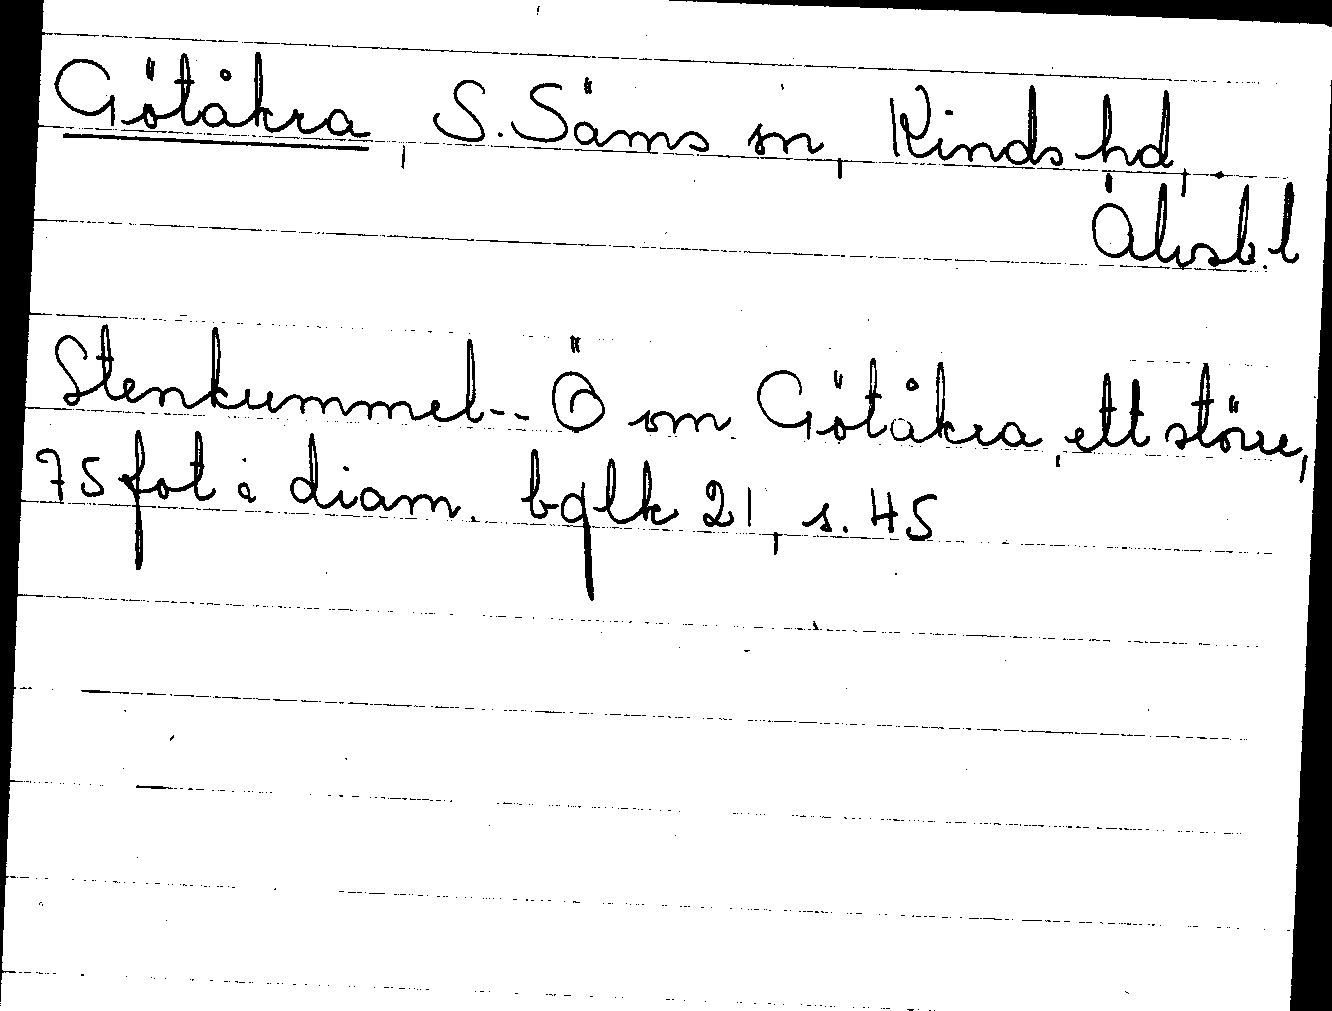 Götåkra, S. Säms sn, Kinds hd,
Älvsb. l
Stenkummel -- Ö om Götåkra, ett större,
75 fot i diam. bqlk 21, s. 45